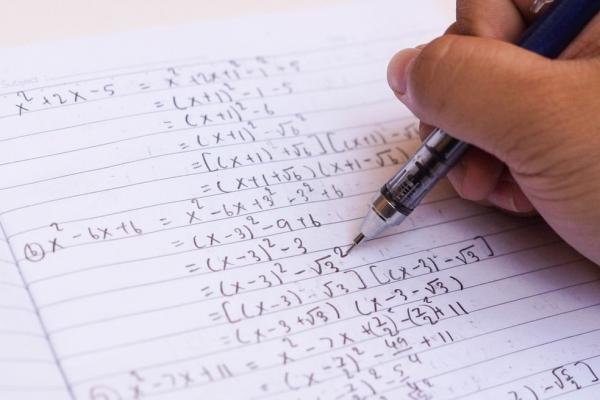 Subject
x² + 2x - 5 = x² + 2x + 1² - 1 - 5
= (x+1)² - 1 - 5
= (x+1)² - 6
= (x+1)² - √6²
= [(x+1) + √6][(x+1) - √6
= (x+1+√6)(x+1-√6)
(b) x² - 6x + 6 = x² - 6x + 3² - 3² + 6
= (x-3)² - 9 + 6
= (x-3)² - 3
= (x-3)² - √3²
= [(x-3) - √3][(x-3) - √3]
= (x-3+√3)(x-3-√3)
x² - 7x + 11 = x² - 7x + (7/2)² - (7/2)² + 11
= (x - 7/2)² - 49/4 + 11
5/4